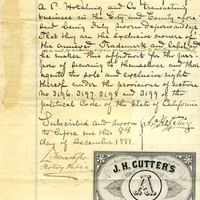 A. P. Hotaling and Co transacting
business in the City and County afore
said being duly sworn deposes and says
That they are the exclusive owners of
the annexed Trademark and Label and
he makes this affidavit for the pur
pose of securing to themselves and their
agents the sole and exclusive right
thereof under the provisions of sections
no 3196. 3197. 3198 and 3199 of the
Political Code of the State of California
Subscribed and sworn A. P. Hotaling
to before me this 8th
day of December 1881.
Notary Public
J. H. CUTTER'S
A